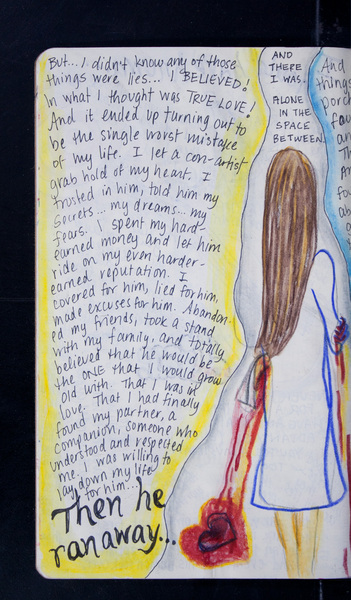 But... I didn't know any of those
things were lies... I BELIEVED!
In what I thought was TRUE LOVE!
And it ended up turning out to
be the single worst mistake
of my life. I let a con-artist
grab hold of my heart. I
trusted in him, told him my
secrets... my dreams... my
fears. I spent my hard-
earned money and let him
ride on my even harder-
earned reputation. I
covered for him, lied for him,
made excuses for him. Abandon-
ed my friends, took a stand
with my family, and totally
believed that he would be
the ONE that I would grow
old with. That I was in
love. That I had finally
found my partner, a
companion, someone who
understood and respected
me. I was willing to
lay down my life
for him...
Then he
ran away...
AND
THERE
I WAS.
ALONE
IN THE
SPACE
BETWEEN
And
things